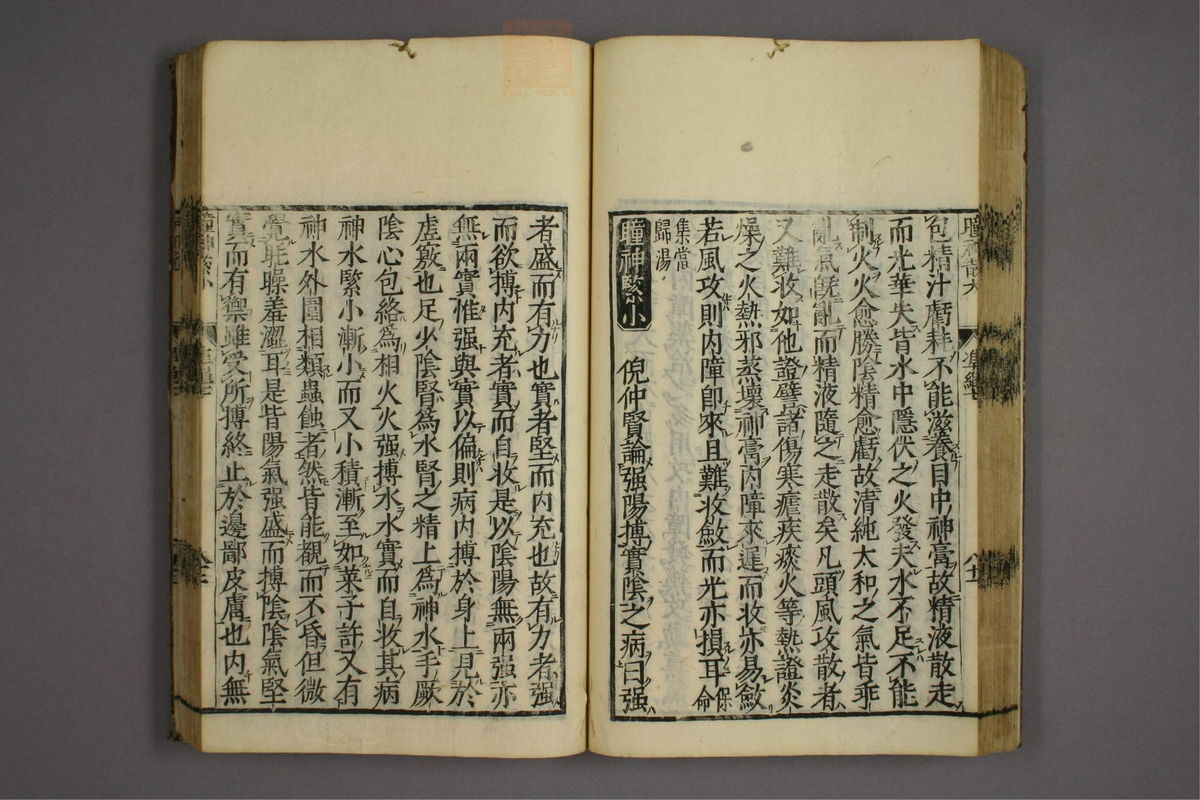 包精汁虧耗不能滋養目中神膏故精液散走
而光華失皆水中隱伏之火發夫水不足不能
制火火愈勝陰精愈虧故清純太和之氣皆乖
亂氣旣亂而精液隨之走散矣凡頭風攻散者
又難收如他證譬諸傷寒瘧疾痰火等熱證炎
燥之火熱邪蒸壞神膏內障來遲而收亦易斂
若風攻則內障即來且難收斂而光亦損耳保命
集當
歸湯
瞳神緊小 倪仲賢論强陽搏實陰之病曰强
者盛而有力也實者堅而內充也故有力者强
而欲搏內充者實而自收是以陰陽無兩强亦
無兩實惟强與實以偏則病內搏於身上見於
虛竅也足少陰腎爲水腎之精上爲神水手厥
陰心包絡爲相火火强搏水水實而自收其病
神水緊小漸小而又小積漸至如菜子許又有
神水外圍相類蟲蝕者然皆能覩而不昏但微
覺眊矂羞澀耳是皆陽氣强盛而搏陰陰氣堅
實而有禦雖受所搏終止於邊鄙皮膚也內無